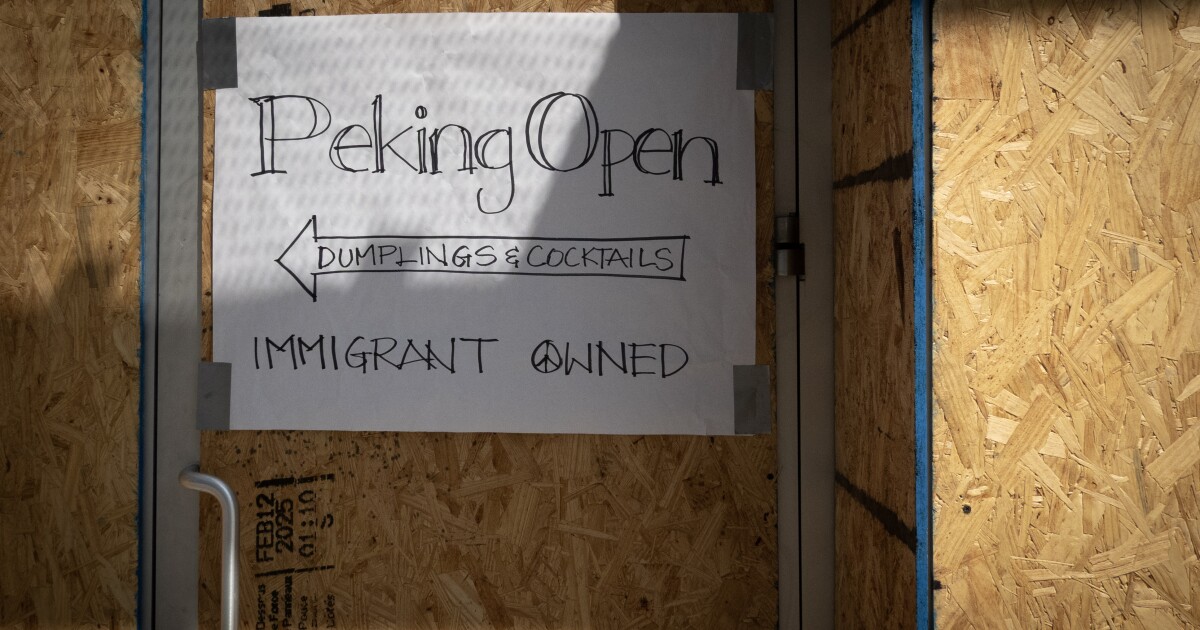 Peking Open
DUMPLINGS & COCKTAILS
IMMIGRANT OWNED
FEB12
2025
01:10
S